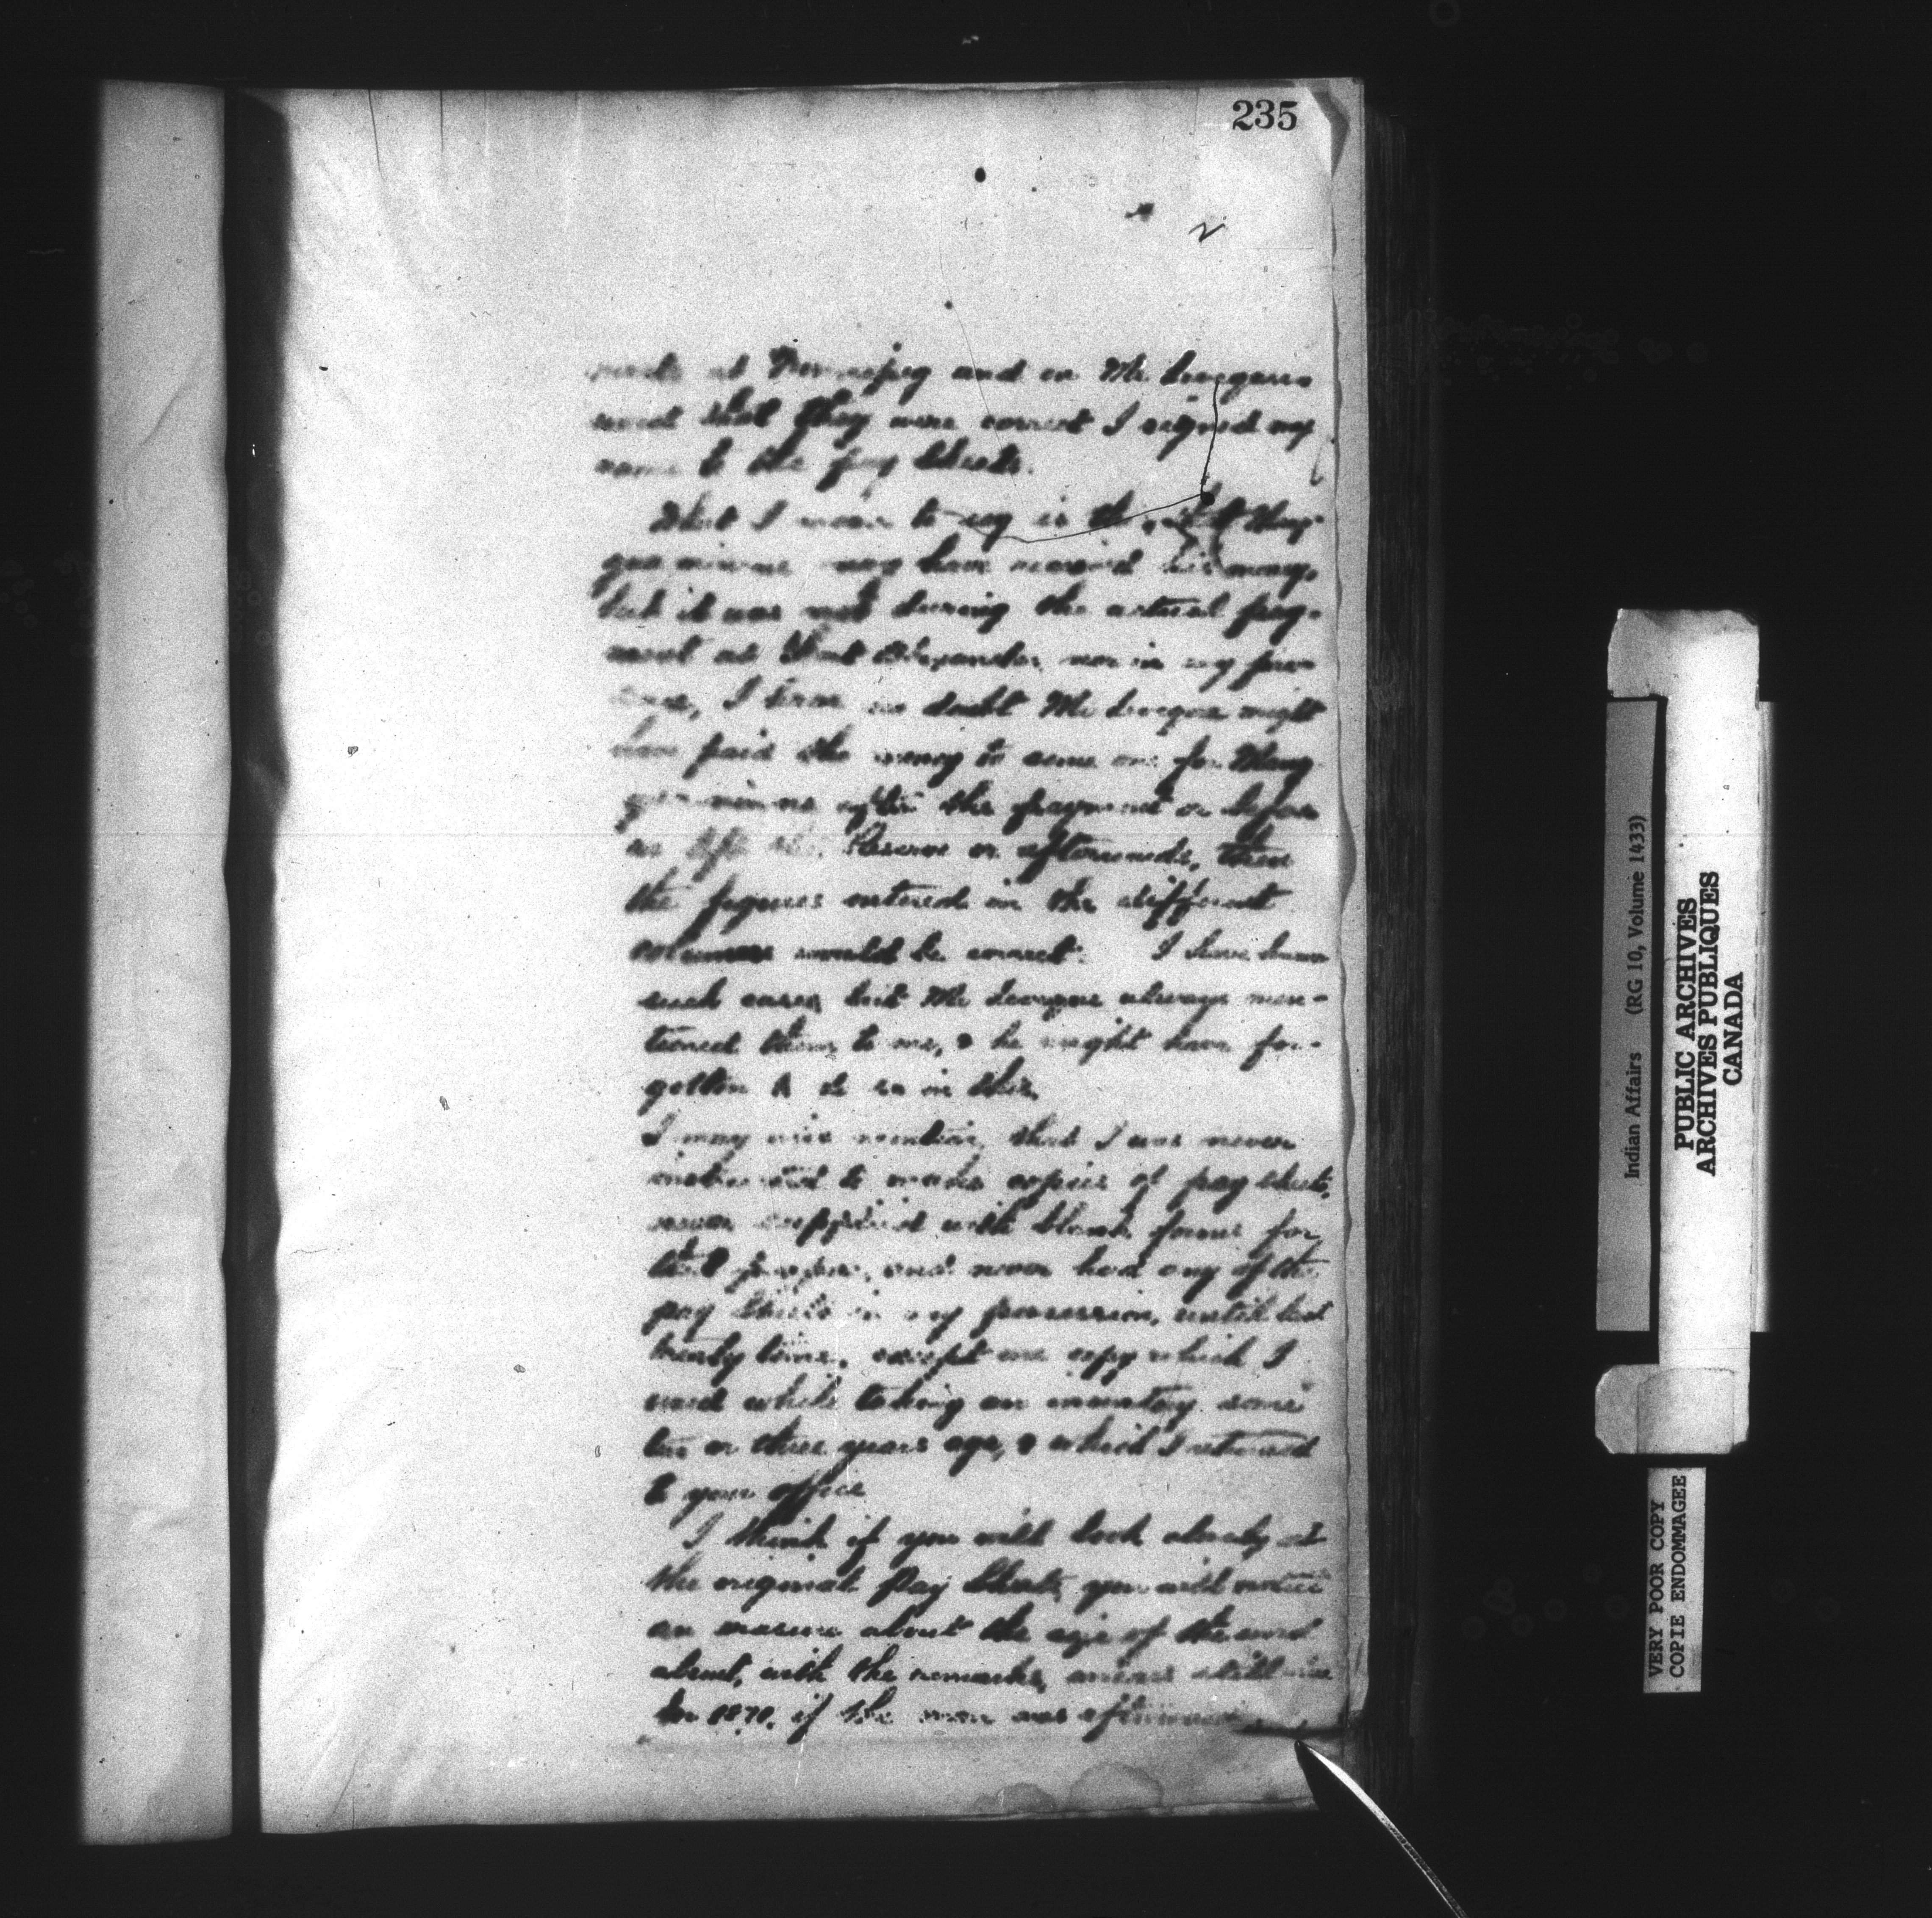 235
2
at Winnipeg and on Mr Levegues
that they were correct I signed my
name to the pay Sheets.
What I mean to say is that Mang-
may have received his money,
but it was not during the actual pay-
ment at Fort Alexander, nor in my pres-
ence, I have no doubt Mr Levegue might
have paid the money to some one for Mang
after the payment or before
Reserve or afterwards, then
the figures entered in the different
columns would be correct. I have known
such cases but Mr Levegue always men-
tioned them to me, & he might have for-
gotten to do so in this.
I may also mention, that I was never
instructed to make copies of pay sheets,
never supplied with blank forms for
that purpose, and never had any of the
pay Sheets in my possession, until last
treaty time, except one copy which I
used while taking an inventory some
two or three years ago, & which I returned
to your office
I think if you will look closely at
the original Pay Sheets you will notice
an erasure about the size of the word
absent, with the remarks, arrears still due
for if the man was afterwards
PUBLIC ARCHIVES
ARCHIVES PUBLIQUES
CANADA
Indian Affairs (RG 10, Volume 1433)
VERY POOR COPY
COPIE ENDOMMAGEE